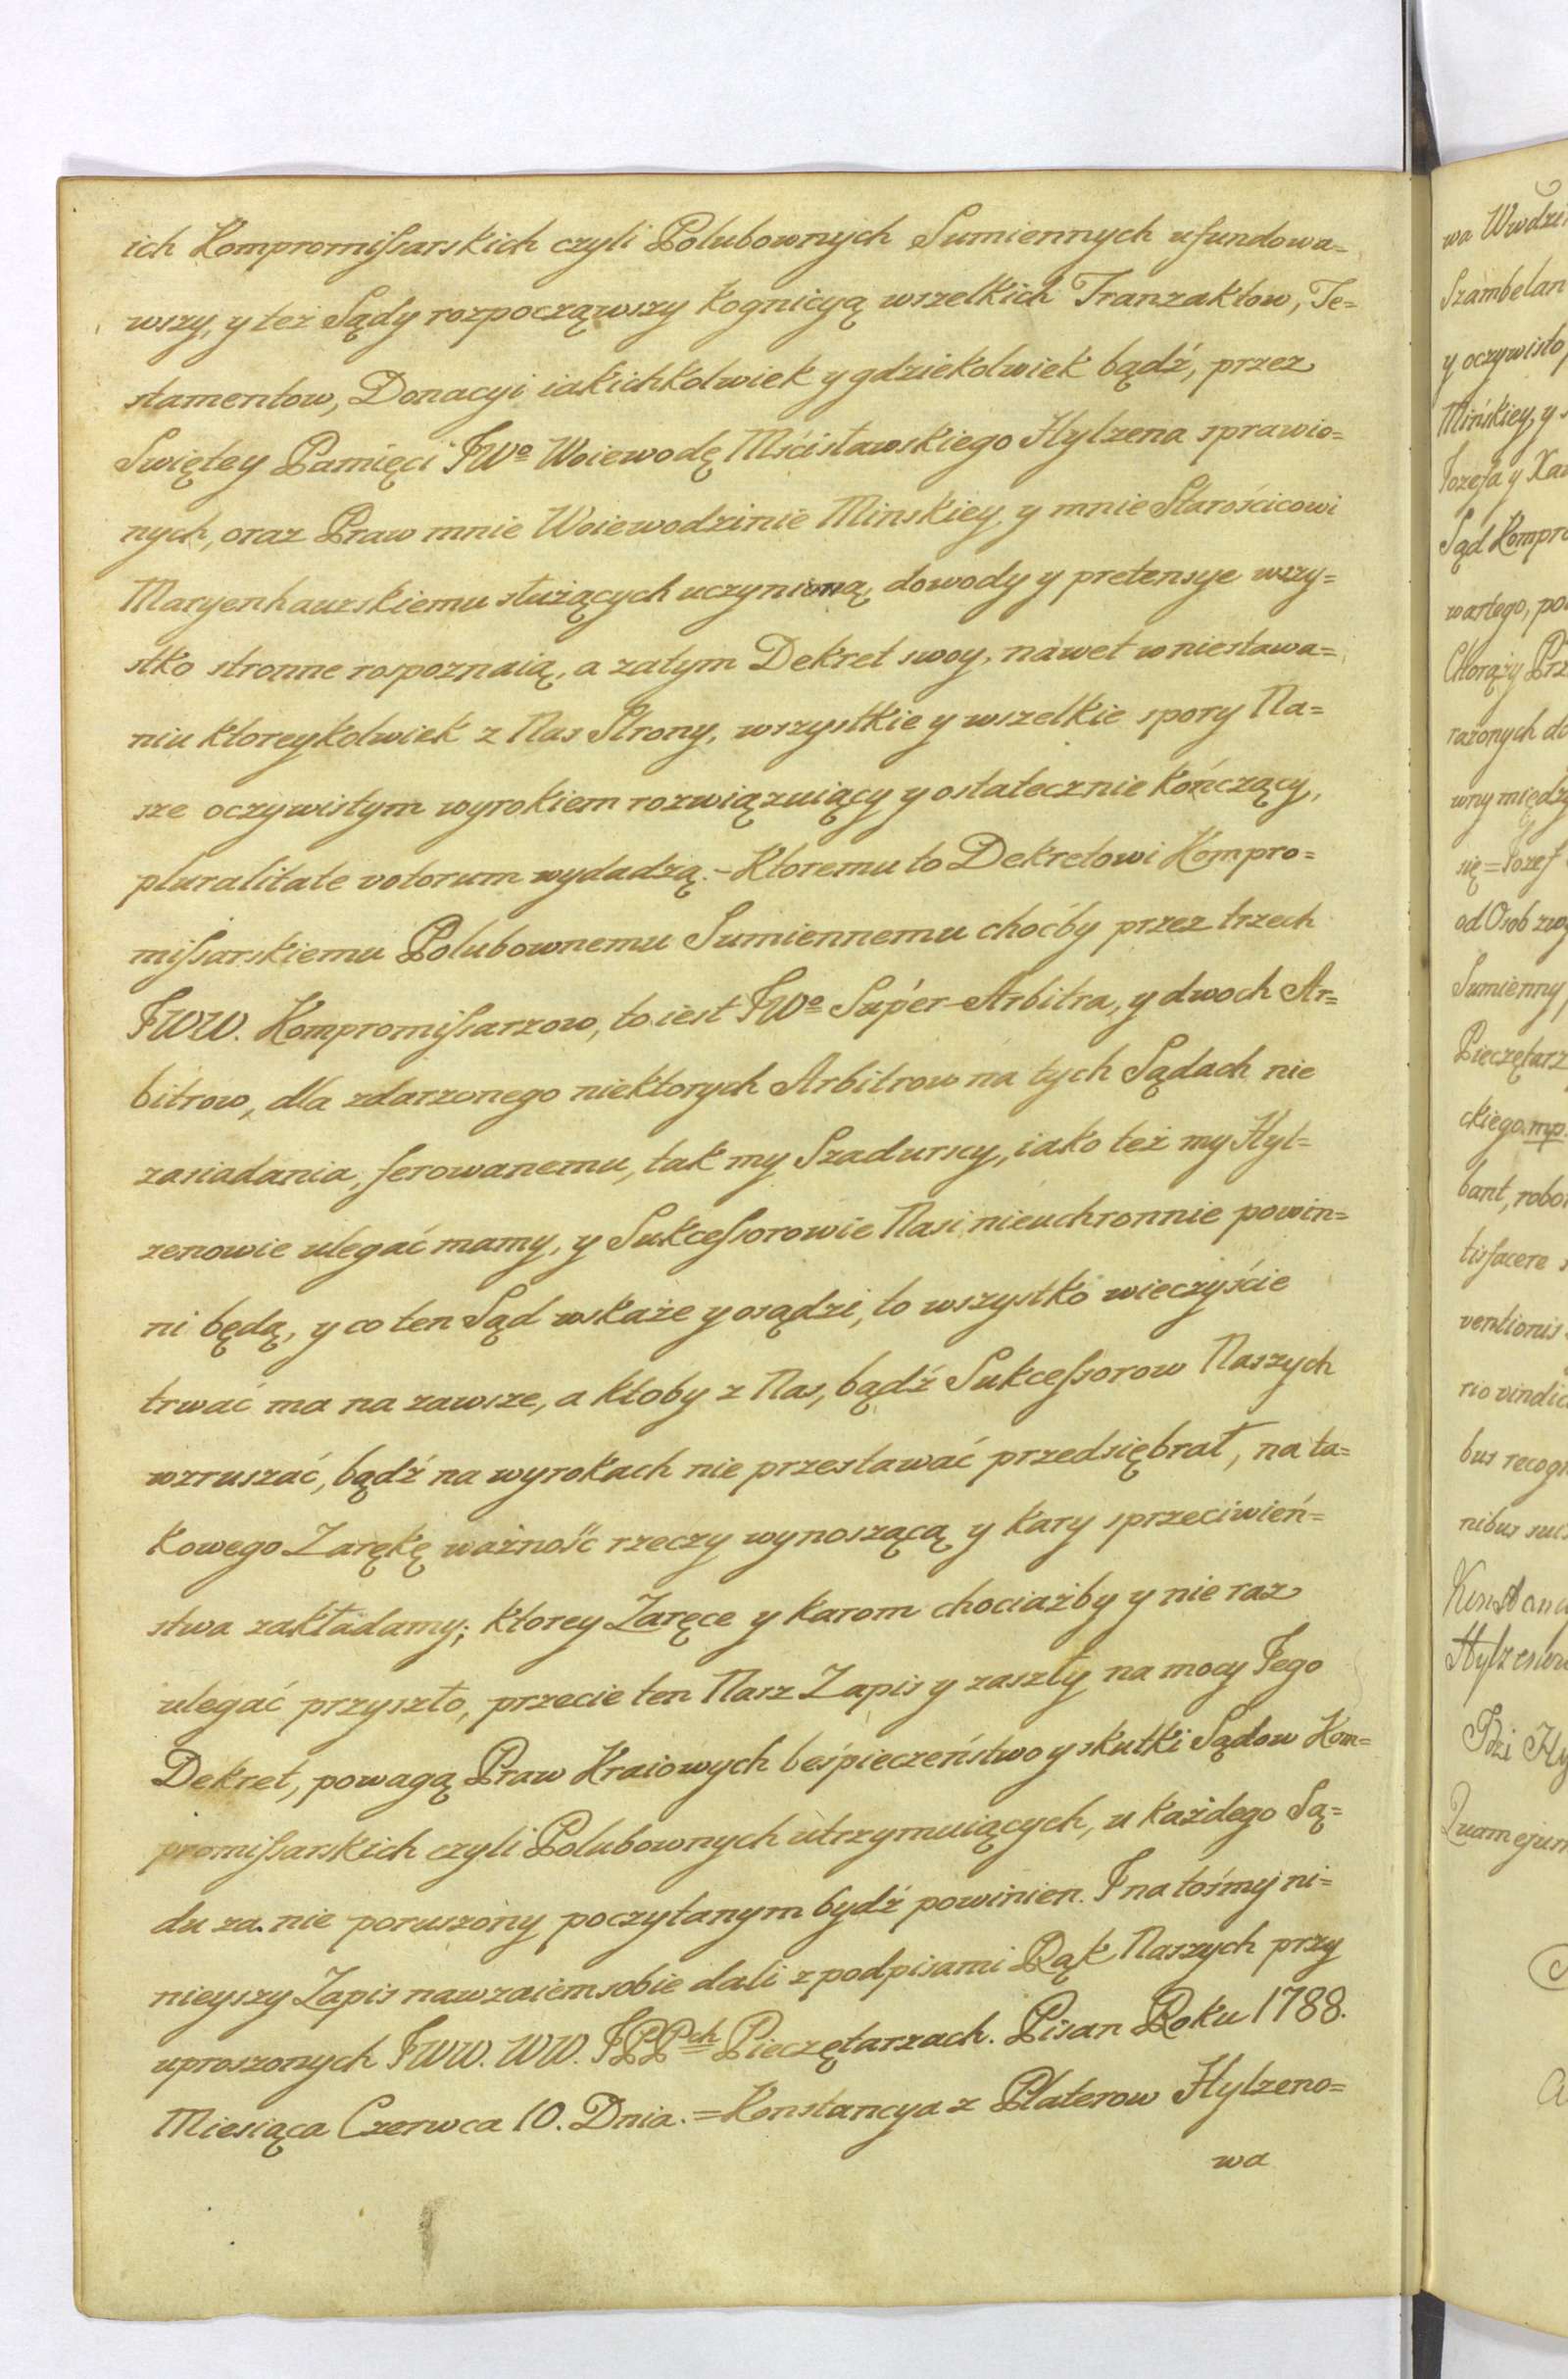 ich Kompromissarskich czyli Polubownych Sumiennych ufundowa=
wszy, y też Sądy rozpocząwszy kognicyą wszelkich Tranzaktow, Te=
stamentow, Donacyi iakichkolwiek y gdziekolwiek bądź, przez
Swiętey Pamięci JWo Woiewodę Mścisławskiego Hylzena sprawio=
nych, oraz Praw mnie Woiewodzinie Minskiey y mnie Starościcowi
Maryenhauzskiemu służących uczynioną, dowody y pretensye wszy=
stko stronne rospoznaią, a zatym Dekret swoy, nawet w niestawa=
niu ktoreykolwiek z Nas Strony, wszystkie y wszelkie spory Na=
sze oczywistym wyrokiem rozwiązuiący y ostatecznie kończący,
pluralitate votorum wydadzą. - Ktoremu to Dekretowi Kompro=
missarskiemu Polubownemu Sumiennemu choćby przez trzech
JWW. Kompromissarzow, to iest JWo Super-Arbitra, y dwoch Ar=
bitrow, dla zdarzonego niektorych Arbitrow na tych Sądach nie
zasiadania, ferowanemu, tak my Szadurscy, iako też my Hyl=
zenowie ulegać mamy, y Sukcessorowie Nasi nieuchronnie powin=
ni będą, y co ten Sąd wskaże y osądzi, to wszystko wieczyście
trwać ma na zawsze, a ktoby z Nas, bądź Sukcessorow Naszych
wzruszać, bądź na wyrokach nie przestawać przedsiębrał, na ta=
kowego Zarękę ważność rzeczy wynoszącą y kary sprzeciwień=
stwa zakładamy; ktorey Zaręce y karom chociażby y nie raz
ulegać przyszło, przecie ten Nasz Zapis y zaszły na mocy Jego
Dekret, powagą Praw Kraiowych beśpieczeństwo y skutki Sądow Kom=
promissarskich czyli Polubownych utrzymuiących, u każdego Są=
du za nie poruszony poczytanym bydź powinien. I na tośmy ni=
nieyszy Zapis nawzaiem sobie dali z podpisami Rąk Naszych przy
uproszonych JWW. WW. JPPch Pieczętarzach. Pisan Roku 1788.
Miesiąca Czerwca 10. Dnia. = Konstancya z Platerow Hylzeno=
wa
wa Wwdzi
Szambelan
y oczywisto
Mińskiey, y
Jozefa y Xa
Sąd Kompro
wartego, po
Chorąży Prz
rażonych do
wny między
się = Jozef
od Osob zwy
Sumienny
Pieczętarz
ckiego. mp.
bant, robo
tisfacere
ventionis
rio vindic
bus recogn
nibus suis
Konstancy
Hylzenow
Hy
Quam ejus